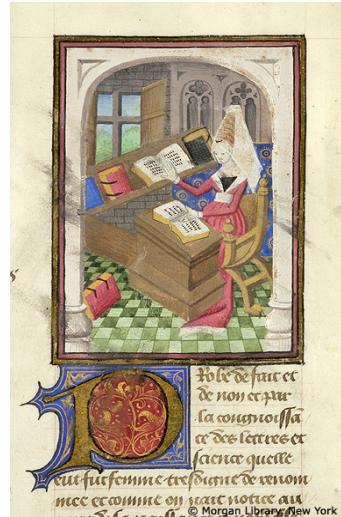 PRobe de fait et
de non et par
la congnoissã
ce des lettres et
science quelle
eut fut femme tresdigne de renom
mee et comme on nait notice au
© Morgan Library, New York